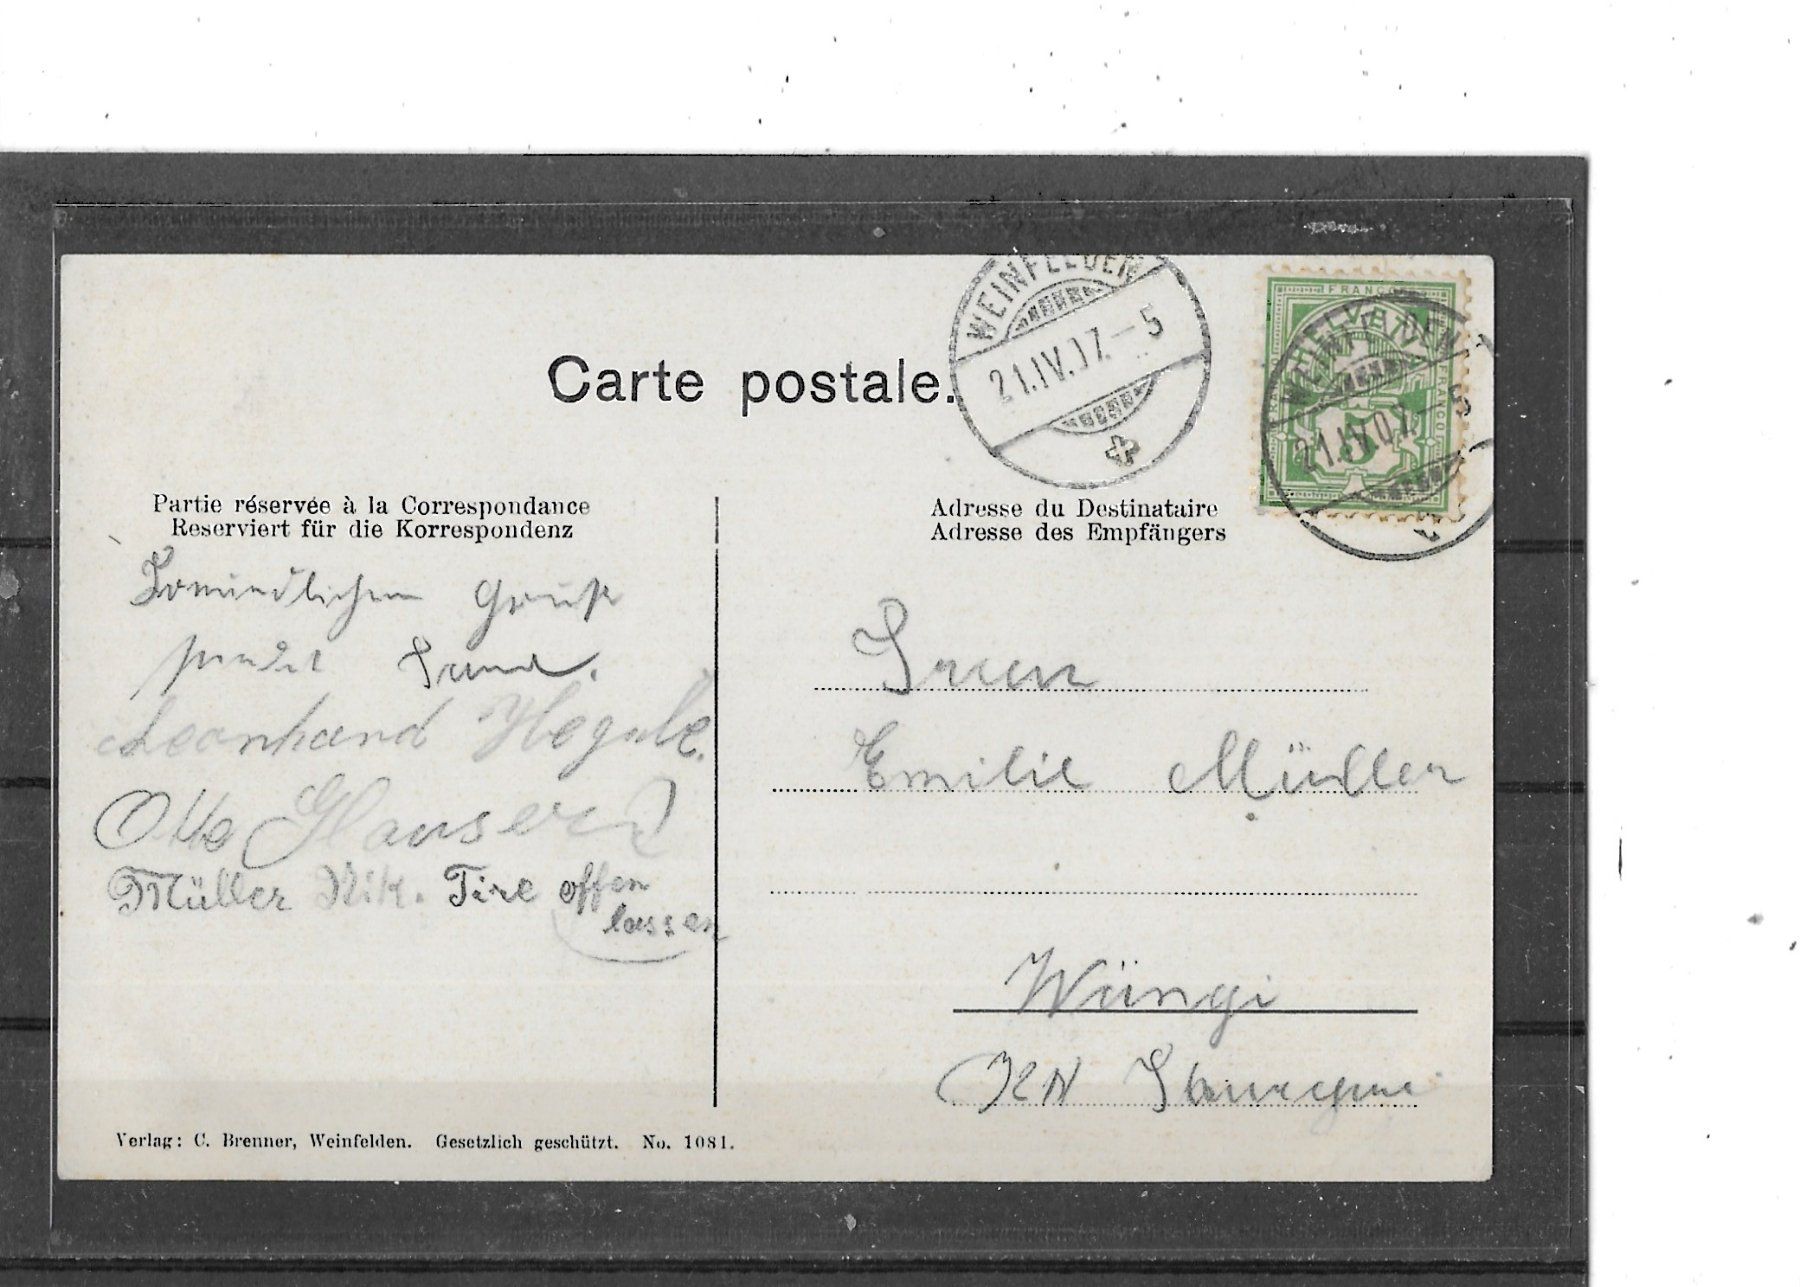 Carte postale.
WEINFELDEN
21.IV.07.–5
FRANCO
HELVETIA
FRANCO
FRANCO
5
WEINFELDEN
21.IV.07.–5
Partie réservée à la Correspondance
Reserviert für die Korrespondenz
Gruß
sendet
Leonhard
Otto Hauser
Müller Nik. Tire offen
lassen
Adresse du Destinataire
Adresse des Empfängers
Emilie Müller
Wängi
Verlag: C. Brenner, Weinfelden. Gesetzlich geschützt. No. 1081.